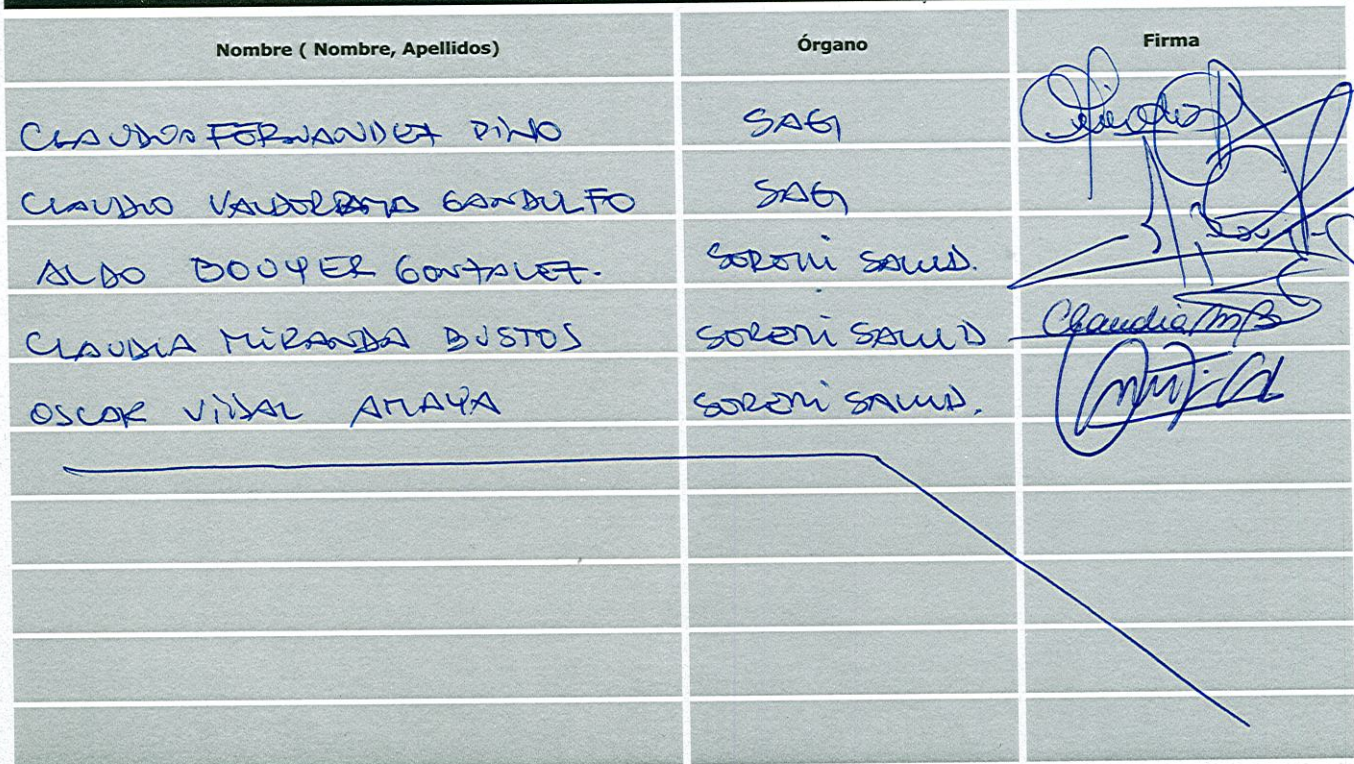 Nombre ( Nombre, Apellidos) Órgano Firma
CLAUDIO FERNANDEZ PINO SAG
CLAUDIO VALDERRAMA GANDULFO SAG
ALDO BOUYER GONZALEZ. SEREMI SALUD.
CLAUDIA MIRANDA BUSTOS SEREMI SALUD Claudia MB
OSCAR VIDAL AMAYA SEREMI SALUD.